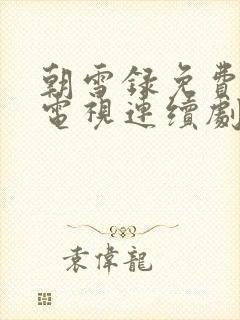 朝雪録免費
電視連續劇
袁偉龍